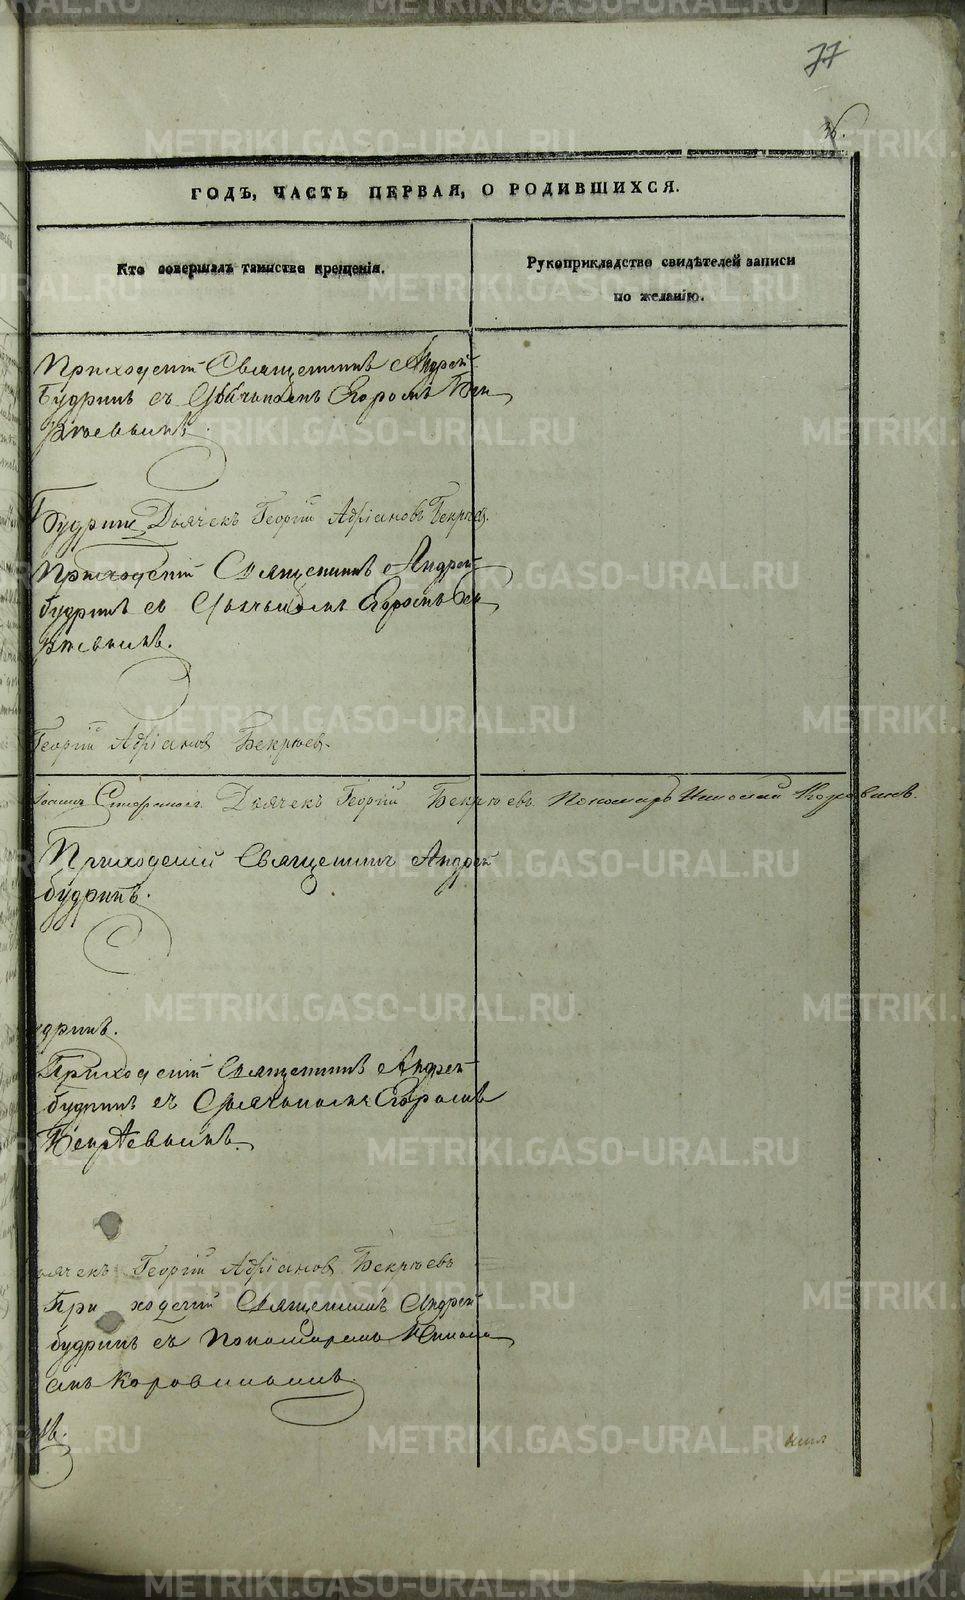 77
36.
ГОДЪ, ЧАСТЬ ПЕРВАЯ, О РОДИВШИХСЯ.
Кто совершалъ таинство крещенія.
Рукоприкладство свидѣтелей записи
по желанію.
Приходскій Священникъ Андрей
Будринъ съ Дьячькомъ Егоромъ Бек
рѣевымъ.
Будринъ Дьячекъ Георгій Адріановъ Бекрѣев
Приходскій Священникъ Андрей
Будринъ съ Дьячькомъ Егоромъ Бек
рѣевымъ.
Георгій Адріановъ Бекрюевъ.
Дьячекъ Георгій Бекрюевъ Пономарь Николай Коровинъ.
Приходскій Священникъ Андрей
Будринъ.
удринъ.
Приходскій Священникъ Андрей
Будринъ съ Дьячькомъ Егоромъ
Бекрѣевымъ.
ьячекъ Георгій Адріановъ Бекрюевъ
Приходскій Священникъ Андрей
Будринъ съ Пономаремъ Никола
емъ Коровинымъ.
METRIKI.GASO-URAL.RU